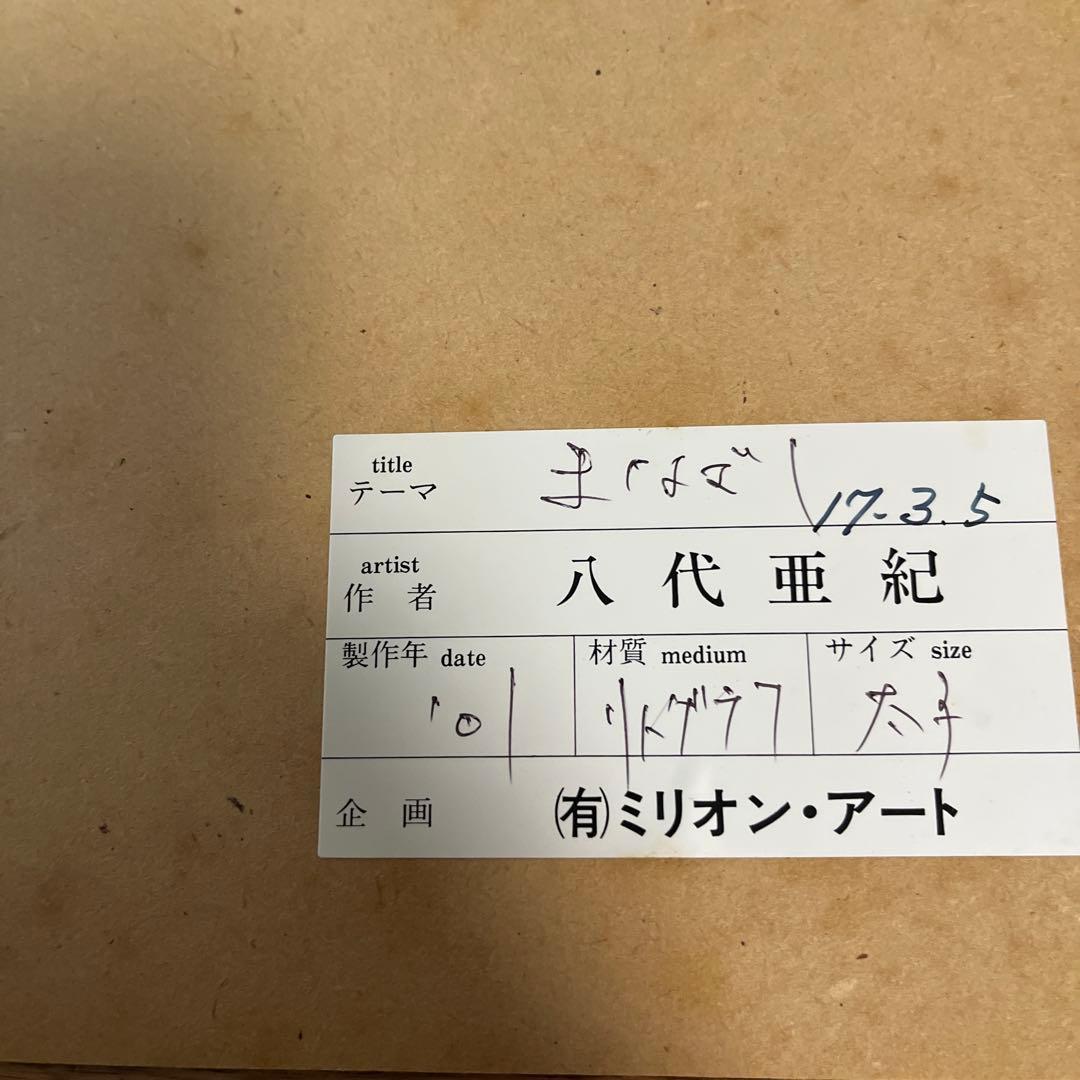 title
テーマ
まなざし
17.3.5
artist
作者
八代亜紀
製作年 date
'01
材質 medium
リトグラフ
サイズ size
太子
企画
(有)ミリオン・アート